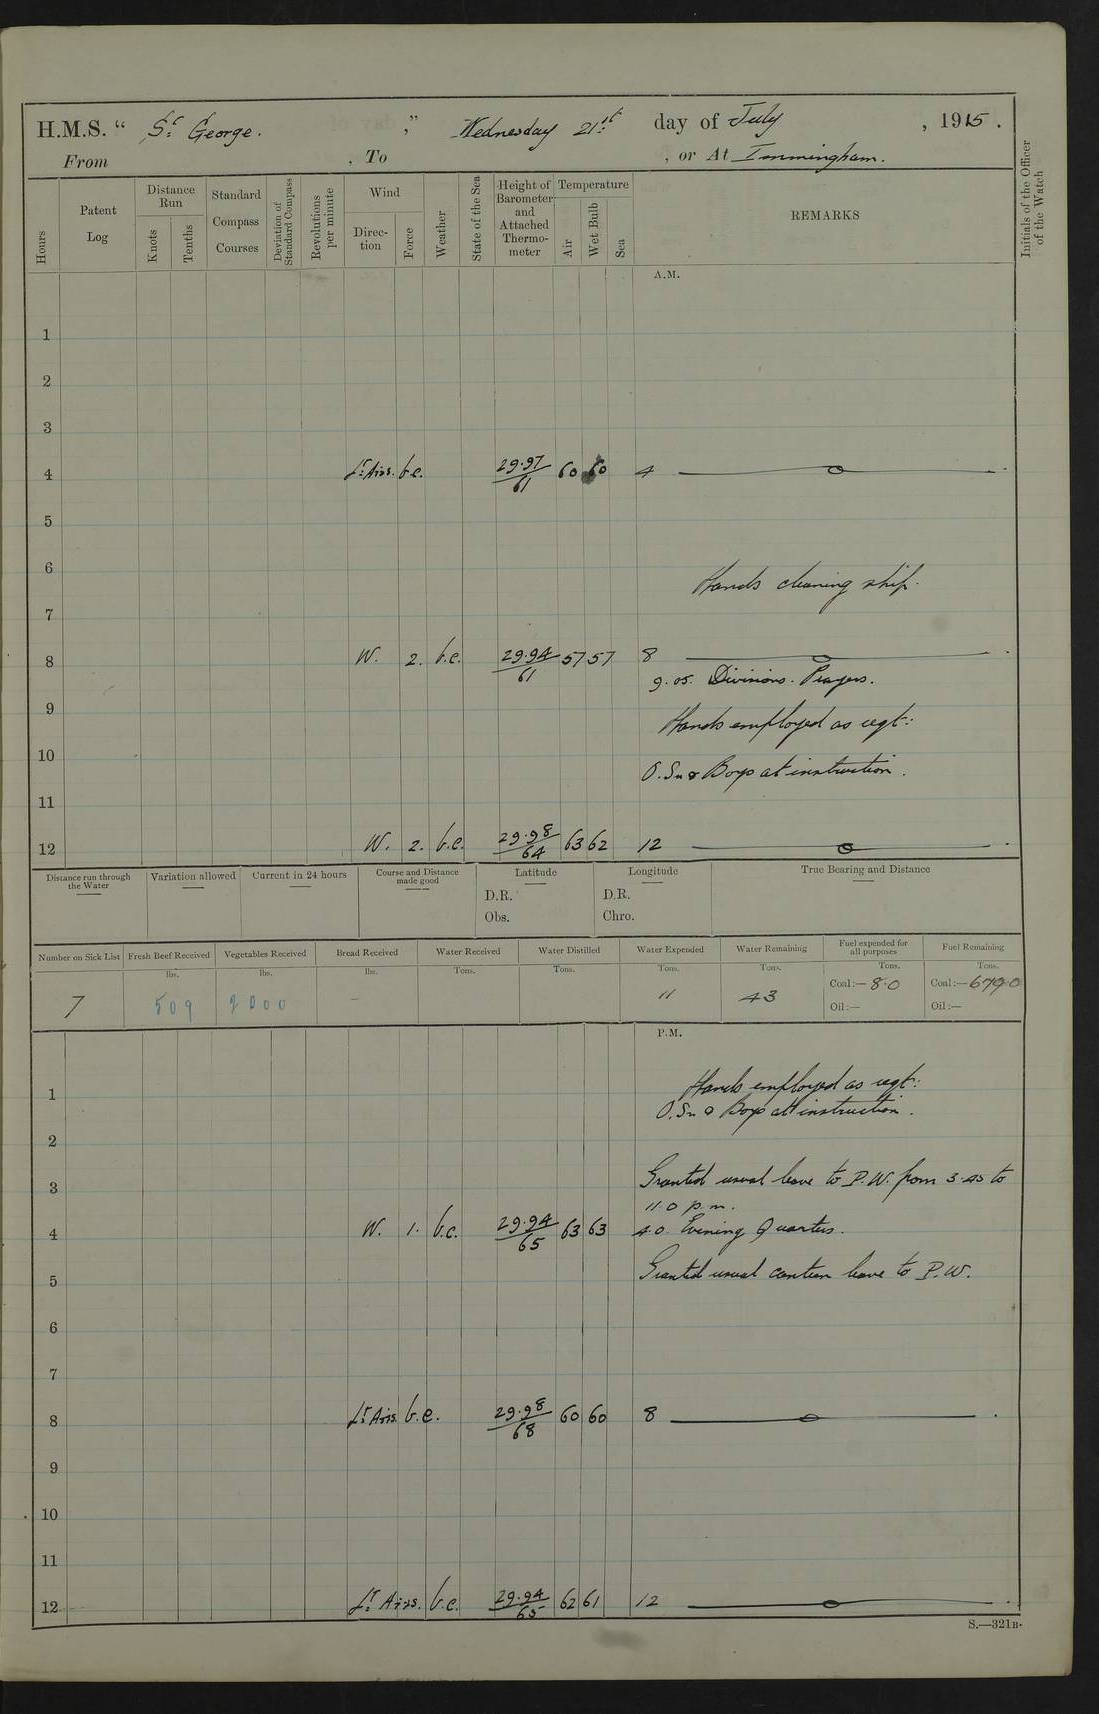 H.M.S. “ St George. ,” Wednesday 21st day of July , 1915.
From , To , or At Immingham.
Hours
Patent Log
Distance Run
Knots
Tenths
Standard Compass Courses
Deviation of Standard Compass
Revolutions per minute
Wind
Direction
Force
Weather
State of the Sea
Height of Barometer and Attached Thermometer
Temperature
Air
Wet Bulb
Sea
REMARKS
Initials of the Officer of the Watch
A.M.
1
2
3
4 Lt Airs. b.c. 29.97/61 60 60 4
5
6
Hands cleaning ship.
7
8 W. 2. b.c. 29.94/61 57 57 8
9.05. Divisions. Prayers.
9
Hands employed as reqt:
10
O.Sn & Boys at instruction.
11
12 W. 2. b.c. 29.98/64 63 62 12
Distance run through the Water
Variation allowed
Current in 24 hours
Course and Distance made good
Latitude
D.R.
Obs.
Longitude
D.R.
Chro.
True Bearing and Distance
Number on Sick List
7
Fresh Beef Received
lbs.
509
Vegetables Received
lbs.
Bread Received
lbs.
-
Water Received
Tons.
Water Distilled
Tons.
Water Expended
Tons.
11
Water Remaining
Tons.
43
Fuel expended for all purposes
Tons.
Coal:— 8.0
Oil:—
Fuel Remaining
Tons.
Coal:— 679.0
Oil:—
P.M.
1
Hands employed as reqt:
O.Sn & Boys at instruction.
2
3
Granted usual leave to P.W. from 3.45 to
11.0 p.m.
4 W. 1. b.c. 29.94/65 63 63 4.0. Evening Quarters.
Granted usual canteen leave to P.W.
5
6
7
8 Lt Airs. b.c. 29.98/68 60 60 8
9
10
11
12 Lt Airs. b.c. 29.94/65 62 61 12
S.—321B.